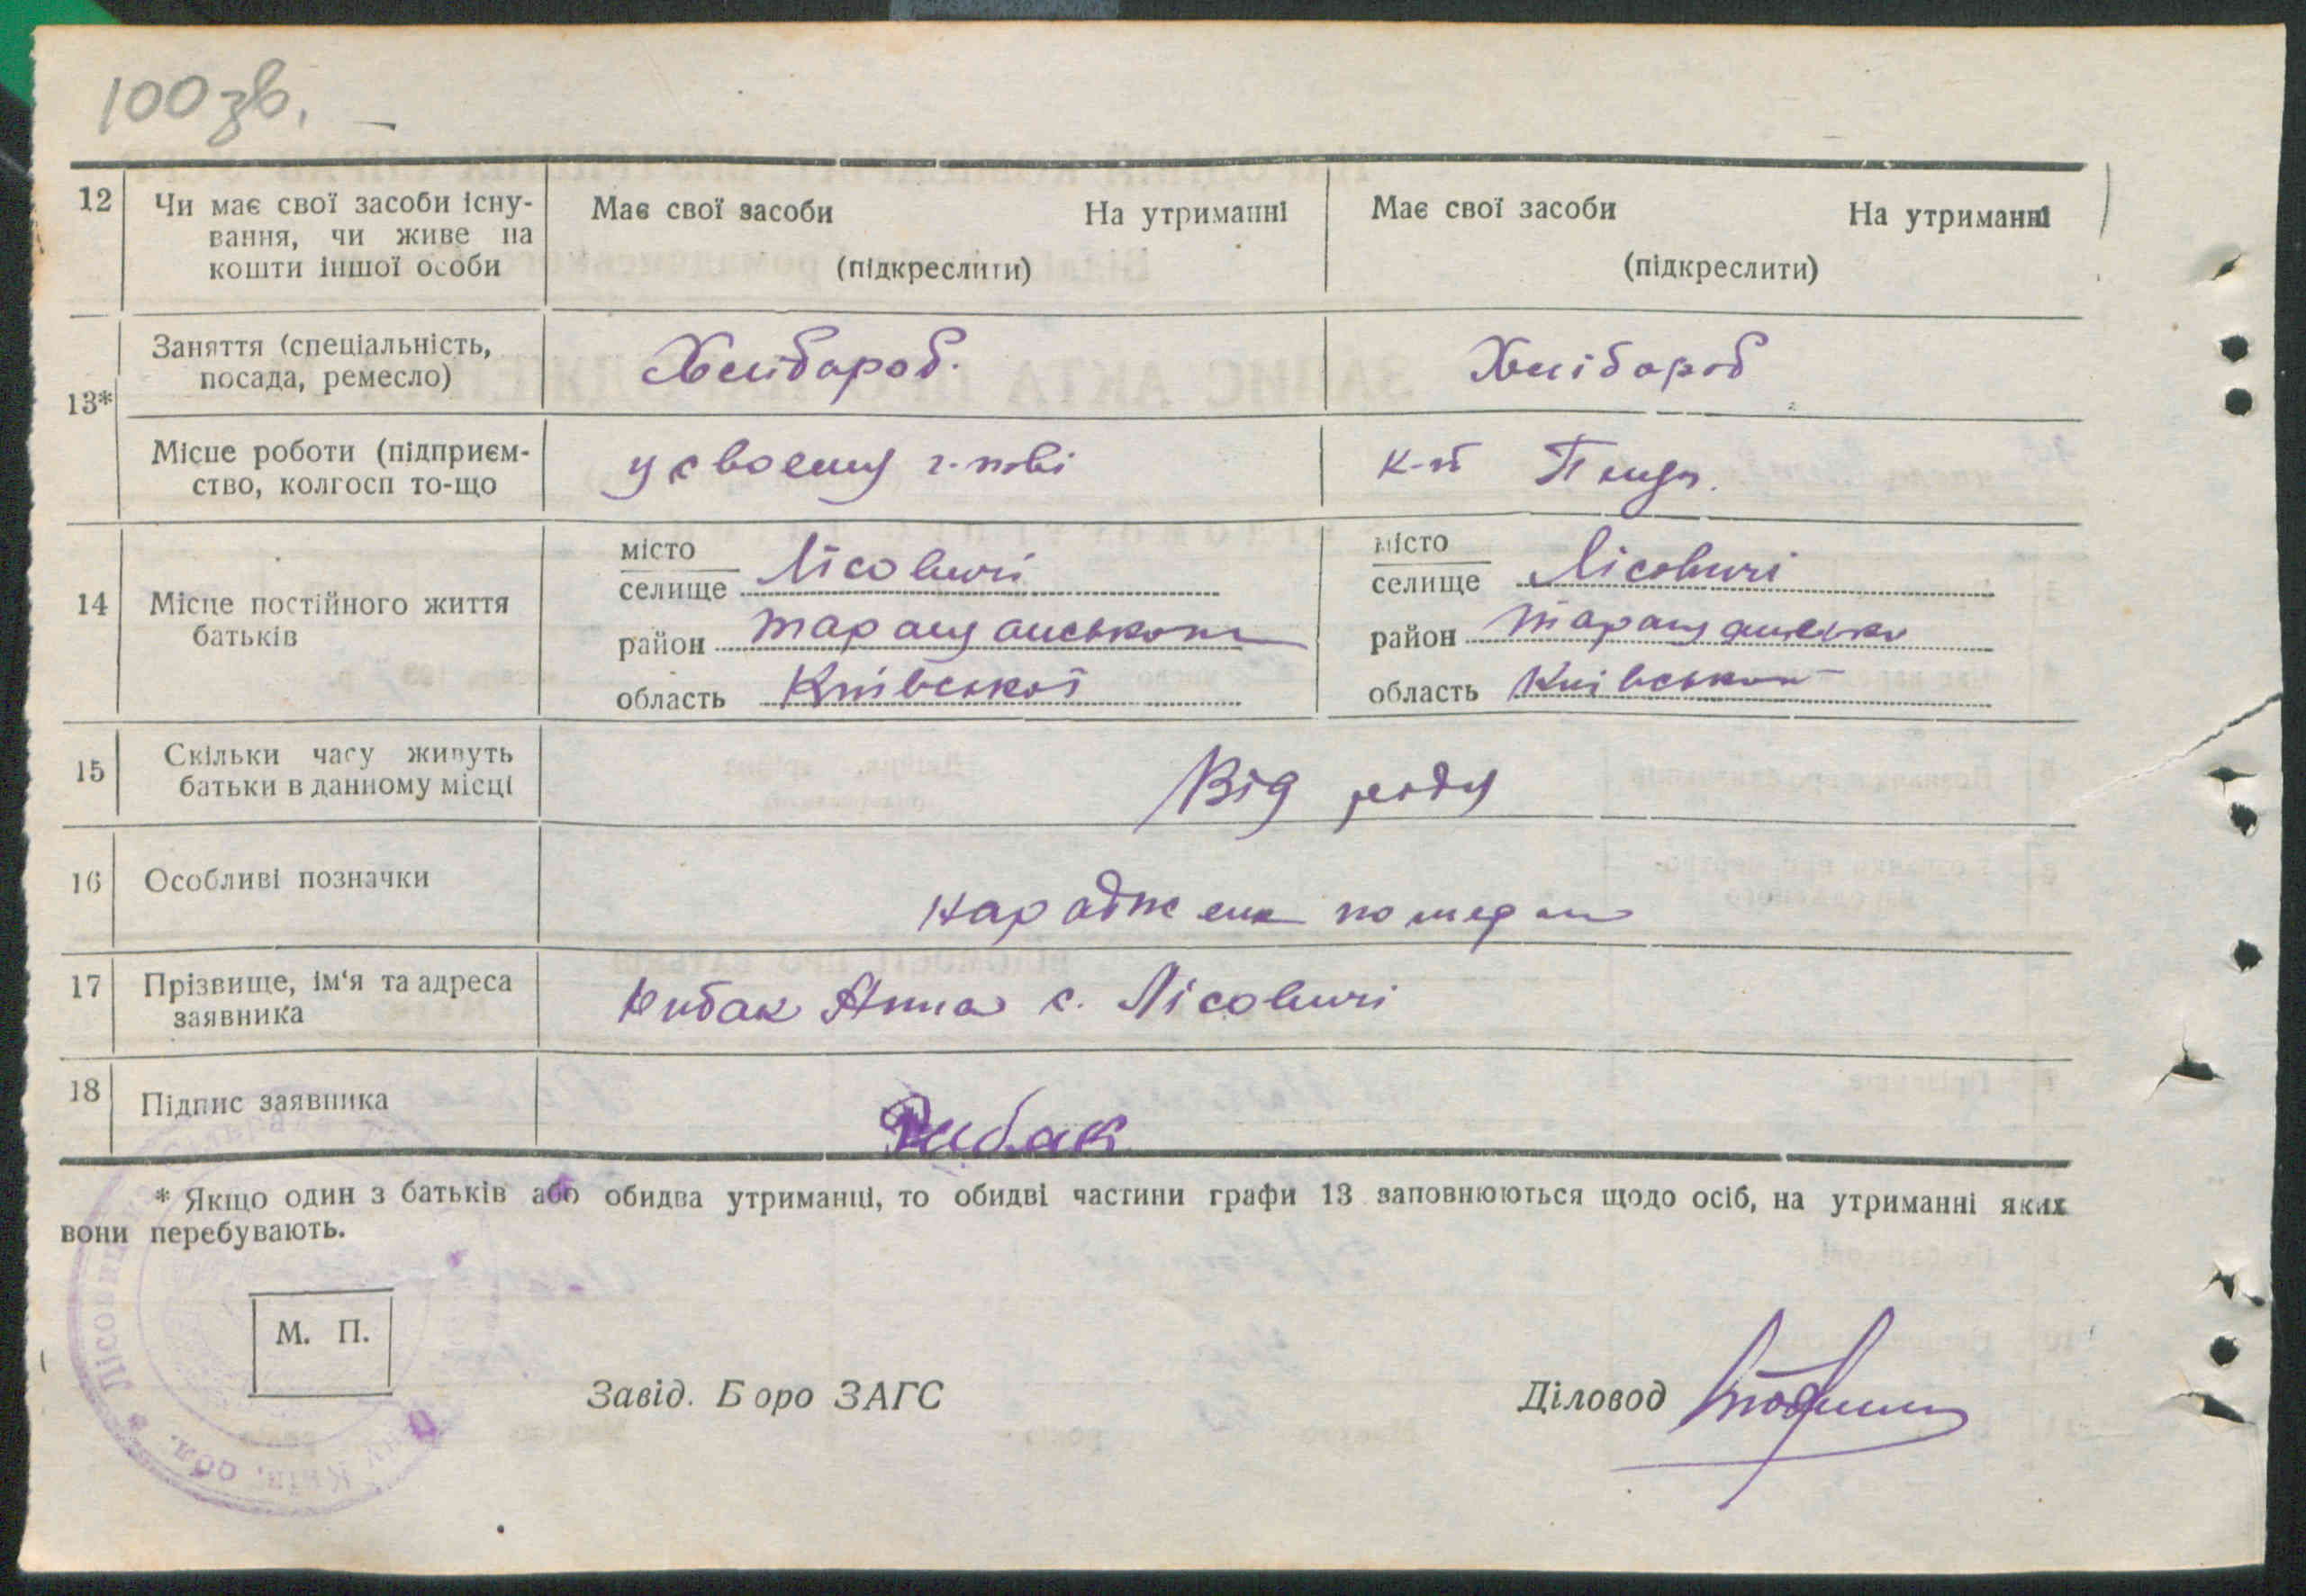 100 зв.
12 Чи має свої засоби існу- Має свої засоби На утриманні Має свої засоби На утриманні
вання, чи живе на
кошти іншої особи (підкреслити) (підкреслити)
13* Заняття (спеціальність, Хлібороб. Хлібороб
посада, ремесло)
Місце роботи (підприєм- у своему г-тві к-п
ство, колгосп то-що
14 Місце постійного життя батьків
місто
селище Лісовичі
район Таращанського
область Київської
місто
селище Лісовичі
район Таращансько
область Київської
15 Скільки часу живуть Від роду
батьки в данному місці
16 Особливі позначки
17 Прізвище, ім'я та адреса Рибак Анна с. Лісовичі
заявника
18 Підпис заявника Рибак
* Якщо один з батьків або обидва утриманці, то обидві частини графи 13 заповнюються щодо осіб, на утриманні яких
вони перебувають.
М. П.
Завід. Б оро ЗАГС Діловод